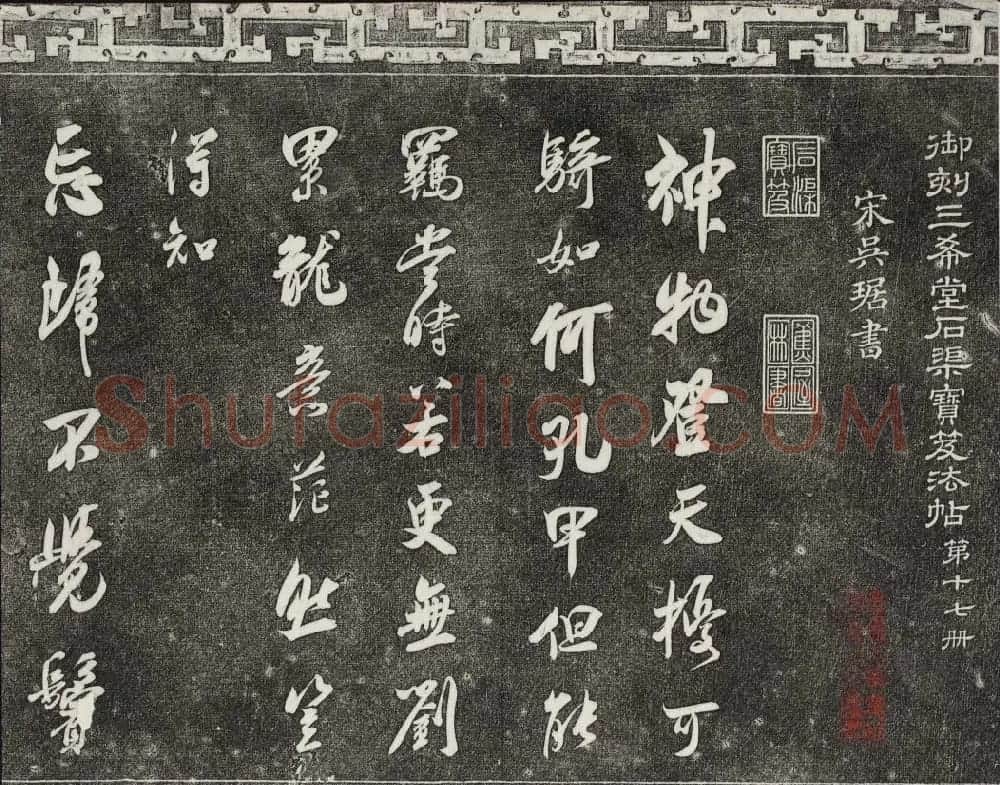 御刻三希堂石渠寶笈法帖第十七冊
宋吳琚書
石渠寶笈
神物登天擾可
騎如何孔甲但能
羈當時若更無劉
累龍意茫然豈
得知
忘歸不覺鬢
Shufaziliao.COM